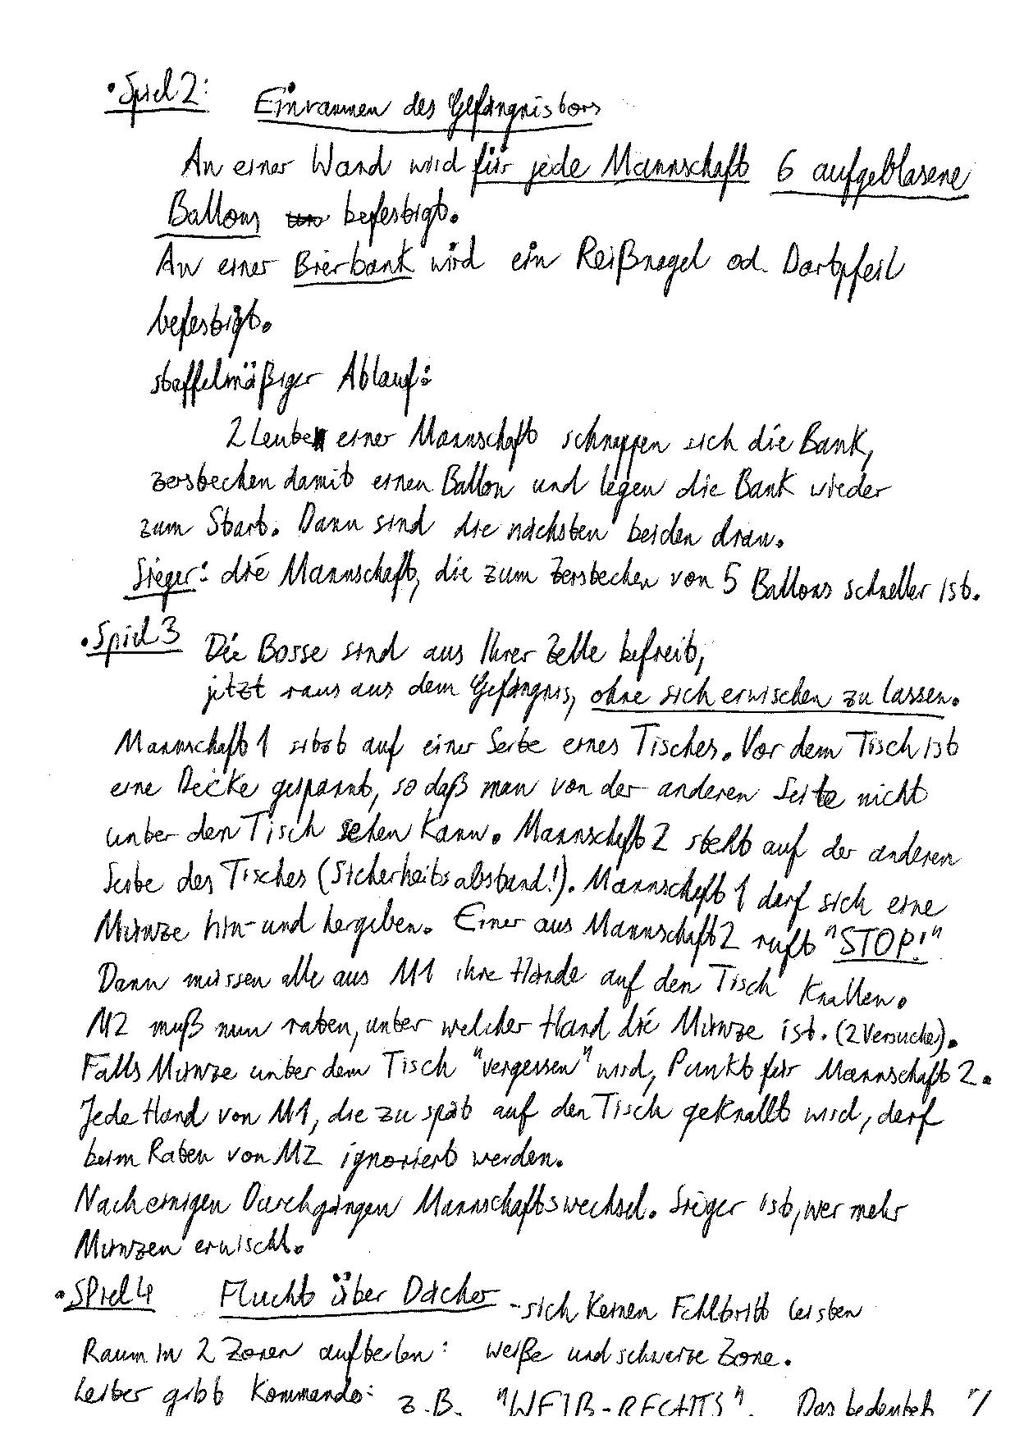 • Spiel 2: Einrammen des Gefängnistors
An einer Wand wird für jede Mannschaft 6 aufgeblasene
Ballons befestigt.
An einer Bierbank wird ein Reißnagel od. Dartpfeil
befestigt.
staffelmäßiger Ablauf:
2 Leute einer Mannschaft schnappen sich die Bank,
zerstechen damit einen Ballon und legen die Bank wieder
zum Start. Dann sind die nächsten beiden dran.
Sieger: die Mannschaft, die zum Zerstechen von 5 Ballons schneller ist.
• Spiel 3 Die Bosse sind aus Ihrer Zelle befreit,
jetzt raus aus dem Gefängnis, ohne sich erwischen zu lassen.
Mannschaft 1 sitzt auf einer Seite eines Tisches. Vor dem Tisch ist
eine Decke gespannt, so daß man von der anderen Seite nicht
unter den Tisch sehen kann. Mannschaft 2 steht auf der anderen
Seite des Tisches (Sicherheitsabstand!). Mannschaft 1 darf sich eine
Münze hin- und hergeben. Einer aus Mannschaft 2 ruft "STOP!"
Dann müssen alle aus M1 ihre Hände auf den Tisch knallen.
M2 muß nun raten, unter welcher Hand die Münze ist. (2 Versuche).
Falls Münze unter dem Tisch "vergessen" wird, Punkt für Mannschaft 2.
Jede Hand von M1, die zu spät auf den Tisch geknallt wird, darf
beim Raten von M2 ignoriert werden.
Nach einigen Durchgängen Mannschaftswechsel. Sieger ist, wer mehr
Münzen erwischt.
• SPiel 4 Flucht über Dächer - sich keinen Fehltritt leisten
Raum in 2 Zonen aufteilen: weiße und schwarze Zone.
Leiter gibt Kommando: z.B. "WEIß-RECHTS". Das bedeutet